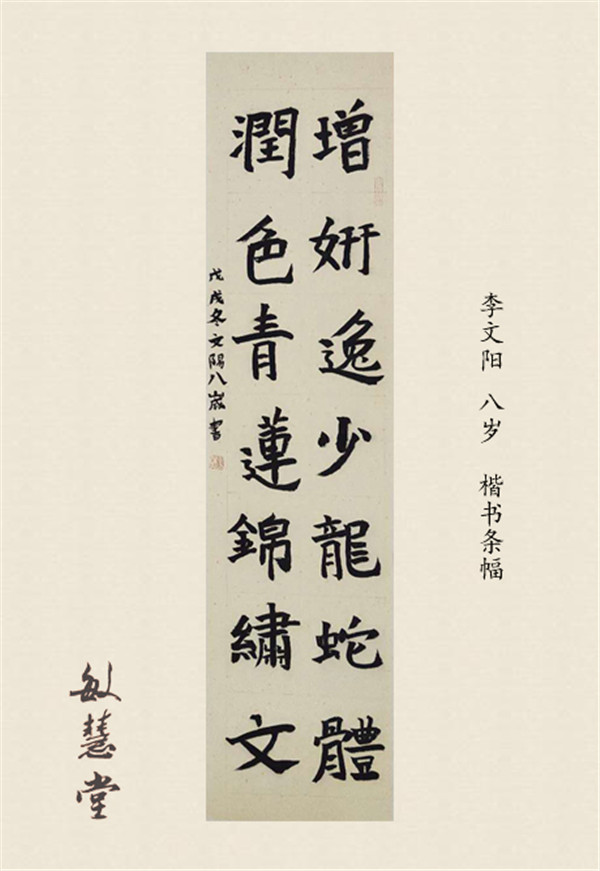 李文阳 八岁 楷书条幅
增妍逸少龍蛇體
潤色青蓮錦繡文
戊戌冬文陽八歲書
敏慧堂